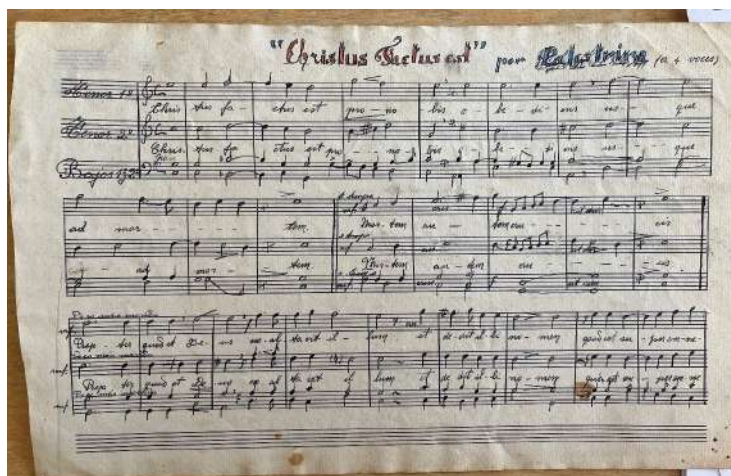 "Christus Factus est" por Palestrina (a 4 voces)
Tenor 1º
Chris tus fa - ctus est pro - no bis o - be - di - ens us - que
Tenor 2º
Chris. tus fa ctus est pro - no - bis o be - ens us - que
Bajos 1º y 2º
ad mor - - - - tem. Mor - tem au - tem cru - - - cis
ad mor - - tem. Mor - tem au - tem cru - - - cis
mf
Prop - ter quod et De - us ex - al - ta - vit il - lum et de - dit il - li no - men quod est su - per om - ne
mf
Prop ter quod et De - us ex al ta vit il lum et de dit il - li no - men quod est su - per om ne
mf